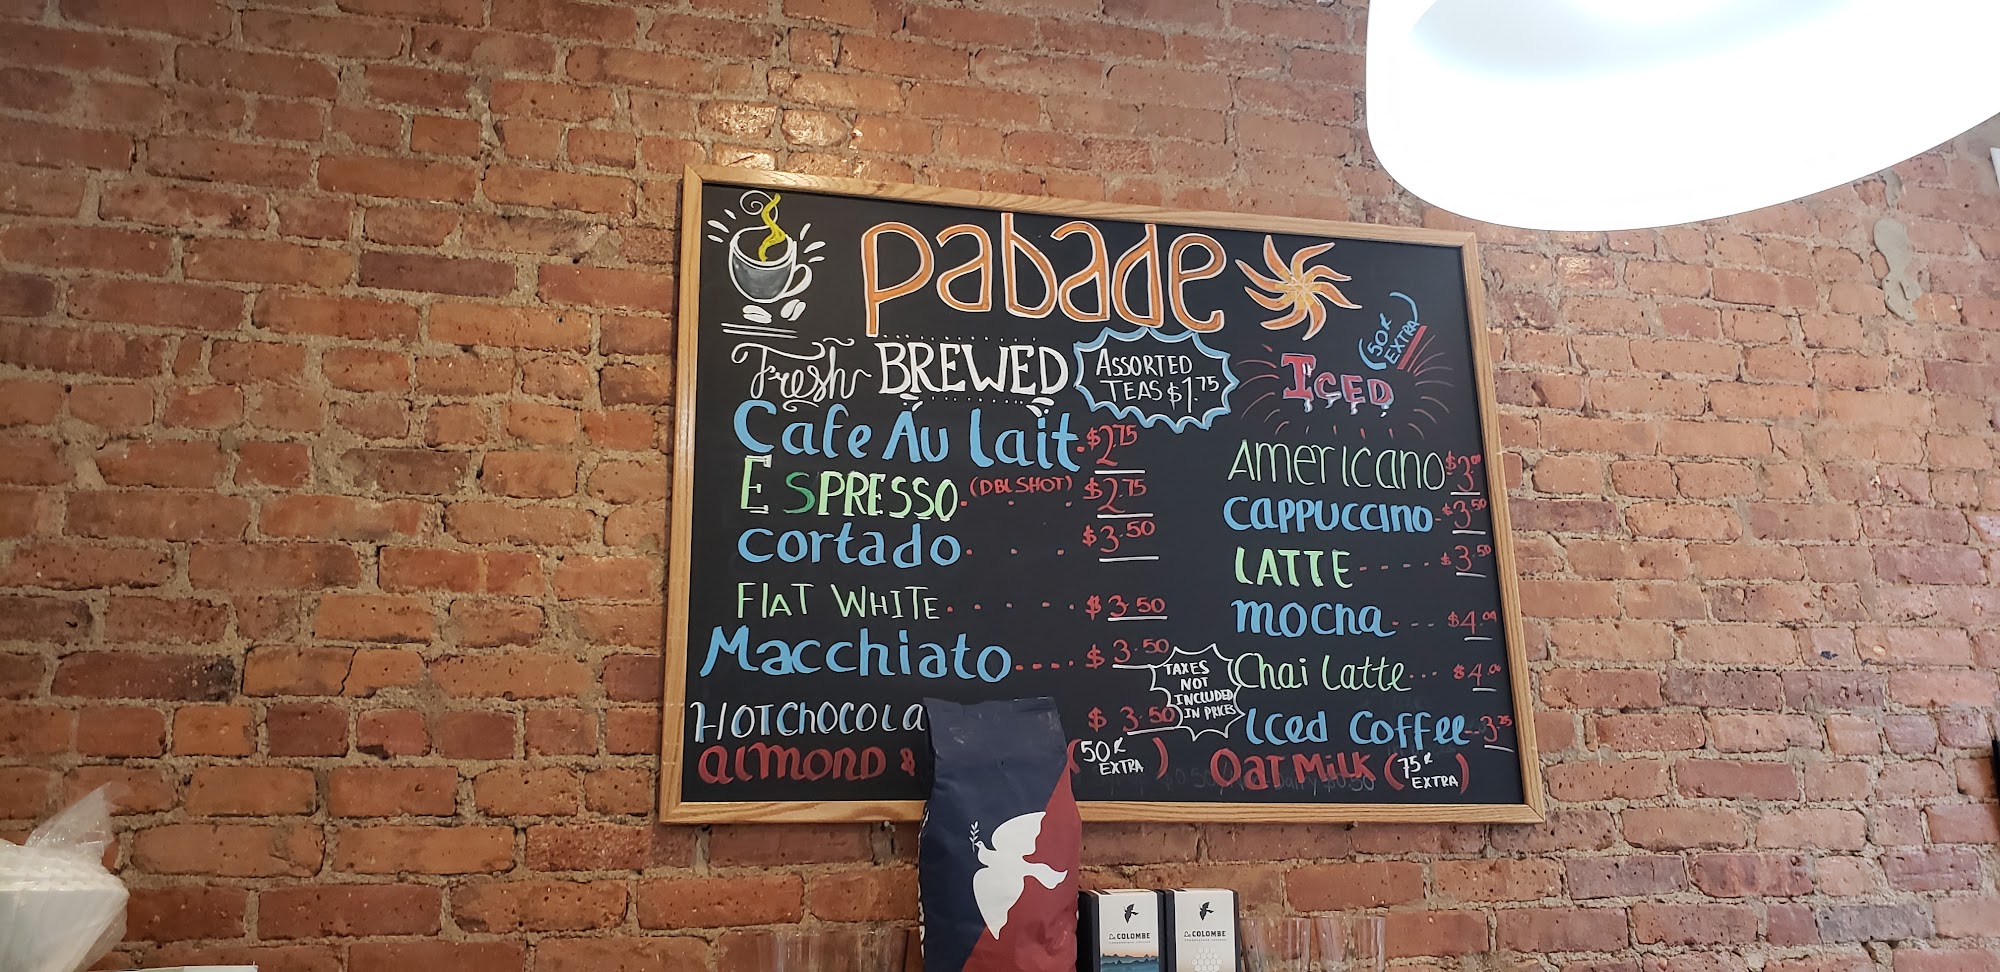 pabade
Fresh BREWED
ASSORTED
TEAS $1.75
Cafe Au lait. $2.75
ESPRESSO. (DBL SHOT) $2.75
cortado. . . . $3.50
FlAT WHITE. . . . . . $3.50
Macchiato.... $3.50
HOT ChOCOLA $3.50
almond & (50¢ EXTRA)
TAXES
NOT
INCLUDED
IN PRICES
50¢
EXTRA
ICED
Americano $3.00
CAPPUCCINO- $3.50
LATTE ---- $3.50
mocha --- $4.00
Chai Latte... $4.00
Iced Coffee.. 3.25
Oat Milk (75¢ EXTRA)
La COLOMBE
La COLOMBE